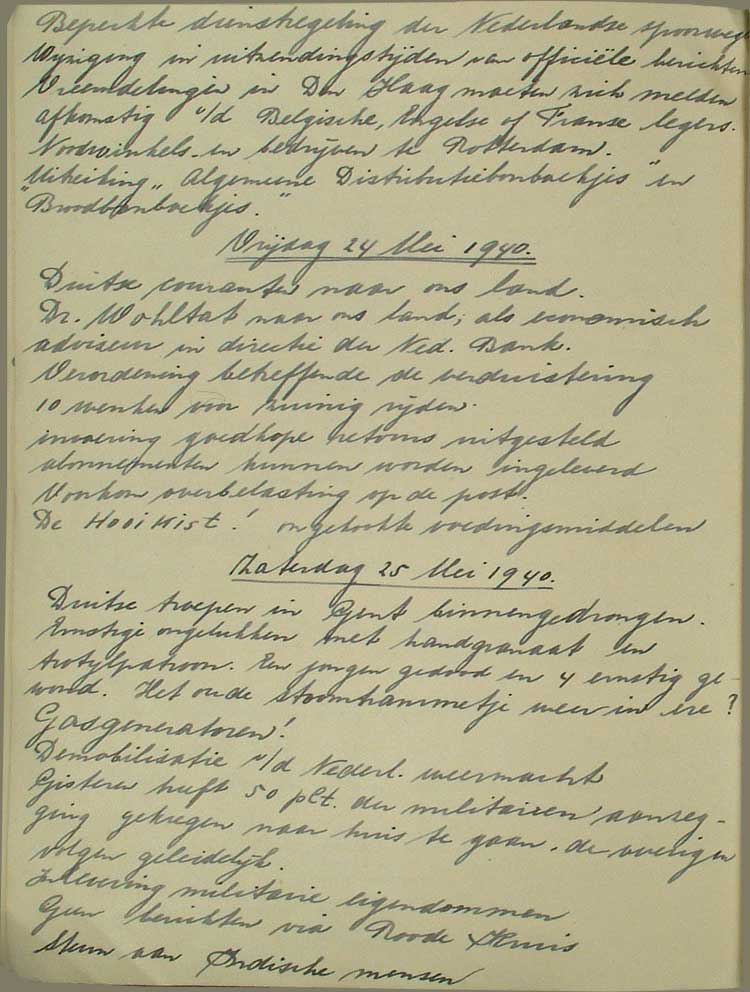 Beperkte dienstregeling der Nederlandse spoorwege
Wijziging in uitzendingstijden van officiële berichten
Vreemdelingen in Den Haag moeten zich melden
afkomstig v/d Belgische, Engelse of Franse legers.
Noodwinkels en bedrijven te Rotterdam.
Uitreiking „Algemeene Distributiebonboekjes" en
"Broodbonboekjes."
Vrijdag 24 Mei 1940.
Duitse couranten naar ons land.
Dr. Wohltat naar ons land; als economisch
adviseur in directie der Ned. Bank.
Verordening betreffende de verduistering
10 wenken voor zuinig rijden.
invoering goedkope retours uitgesteld
abonnementen kunnen worden ingeleverd
Voorkom overbelasting op de post.
De Hooikist! ongekookte voedingsmiddelen
Zaterdag 25 Mei 1940.
Duitse troepen in Gent binnengedrongen.
Ernstige ongelukken met handgranaat en
trotylpatroon. Een jongen gedood en 4 ernstig ge-
wond. Het oude stoomtrammetje weer in ere?
Gasgeneratoren!
Demobilisatie v/d Nederl. weermacht
Gisteren heeft 50 pct. der militairen aanzeg-
ging gekregen naar huis te gaan, de overigen
volgen geleidelijk.
Inlevering militaire eigendommen
Geen berichten via Roode Kruis
Steun aan Indische mensen